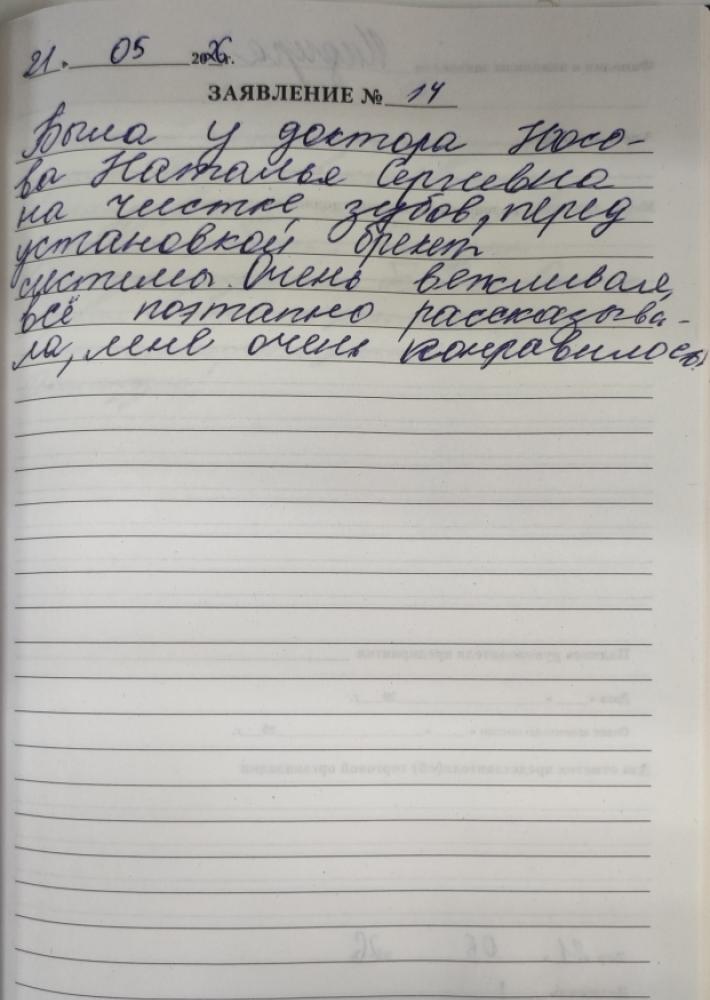 21. 05 2026г.
ЗАЯВЛЕНИЕ № 14
Была у доктора Носо-
ва Наталья Сергеевна
на чистке зубов, перед
установкой брекет
системы. Очень вежливая,
всё поэтапно рассказыва-
ла, мне очень понравилось.